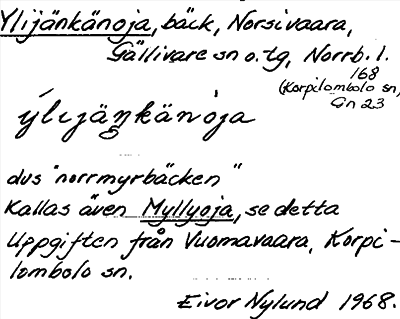 Ylijänkänoja, bäck, Norsivaara,
Gällivare sn o. tg, Norrb. l.
168
(Korpilombolo sn,
Gn 23
ýliján̡kän'oja
dvs "norrmyrbäcken"
Kallas även Myllyoja, se detta
Uppgiften från Vuomavaara, Korpi-
lombolo sn.
Eivor Nylund 1968.